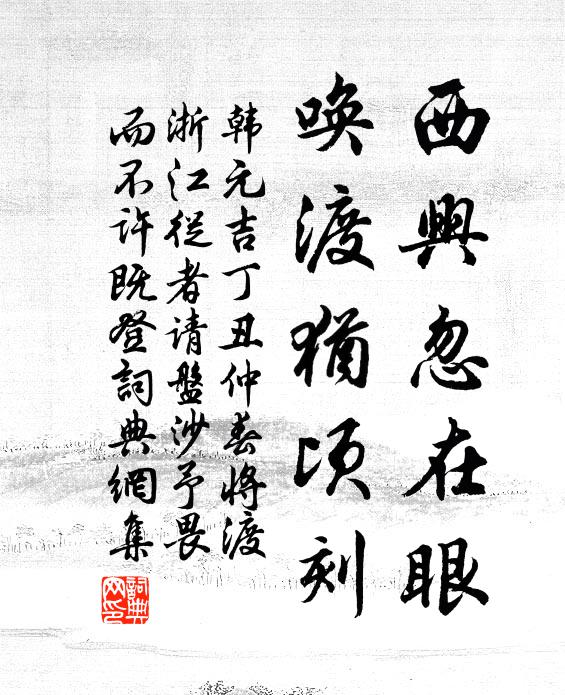 西興忽在眼
喚渡猶頃刻
韩元吉丁丑仲春將渡
浙江從者请盤沙予畏
而不许既登詞典網集
詞典网印